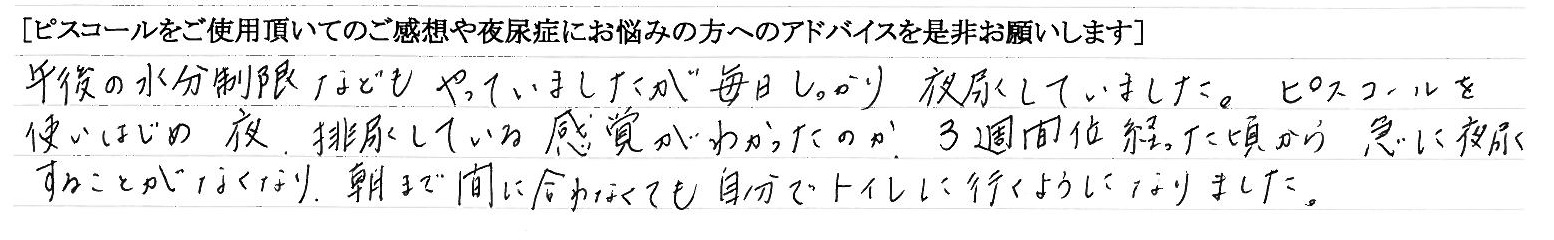 [ピスコールをご使用頂いてのご感想や夜尿症にお悩みの方へのアドバイスを是非お願いします]
午後の水分制限などもやっていましたが毎日しっかり夜尿していました。ピスコールを
使いはじめ夜、排尿している感覚がわかったのか、3週間位経った頃から急に夜尿
することがなくなり、朝まで間に合わなくても自分でトイレに行くようになりました。